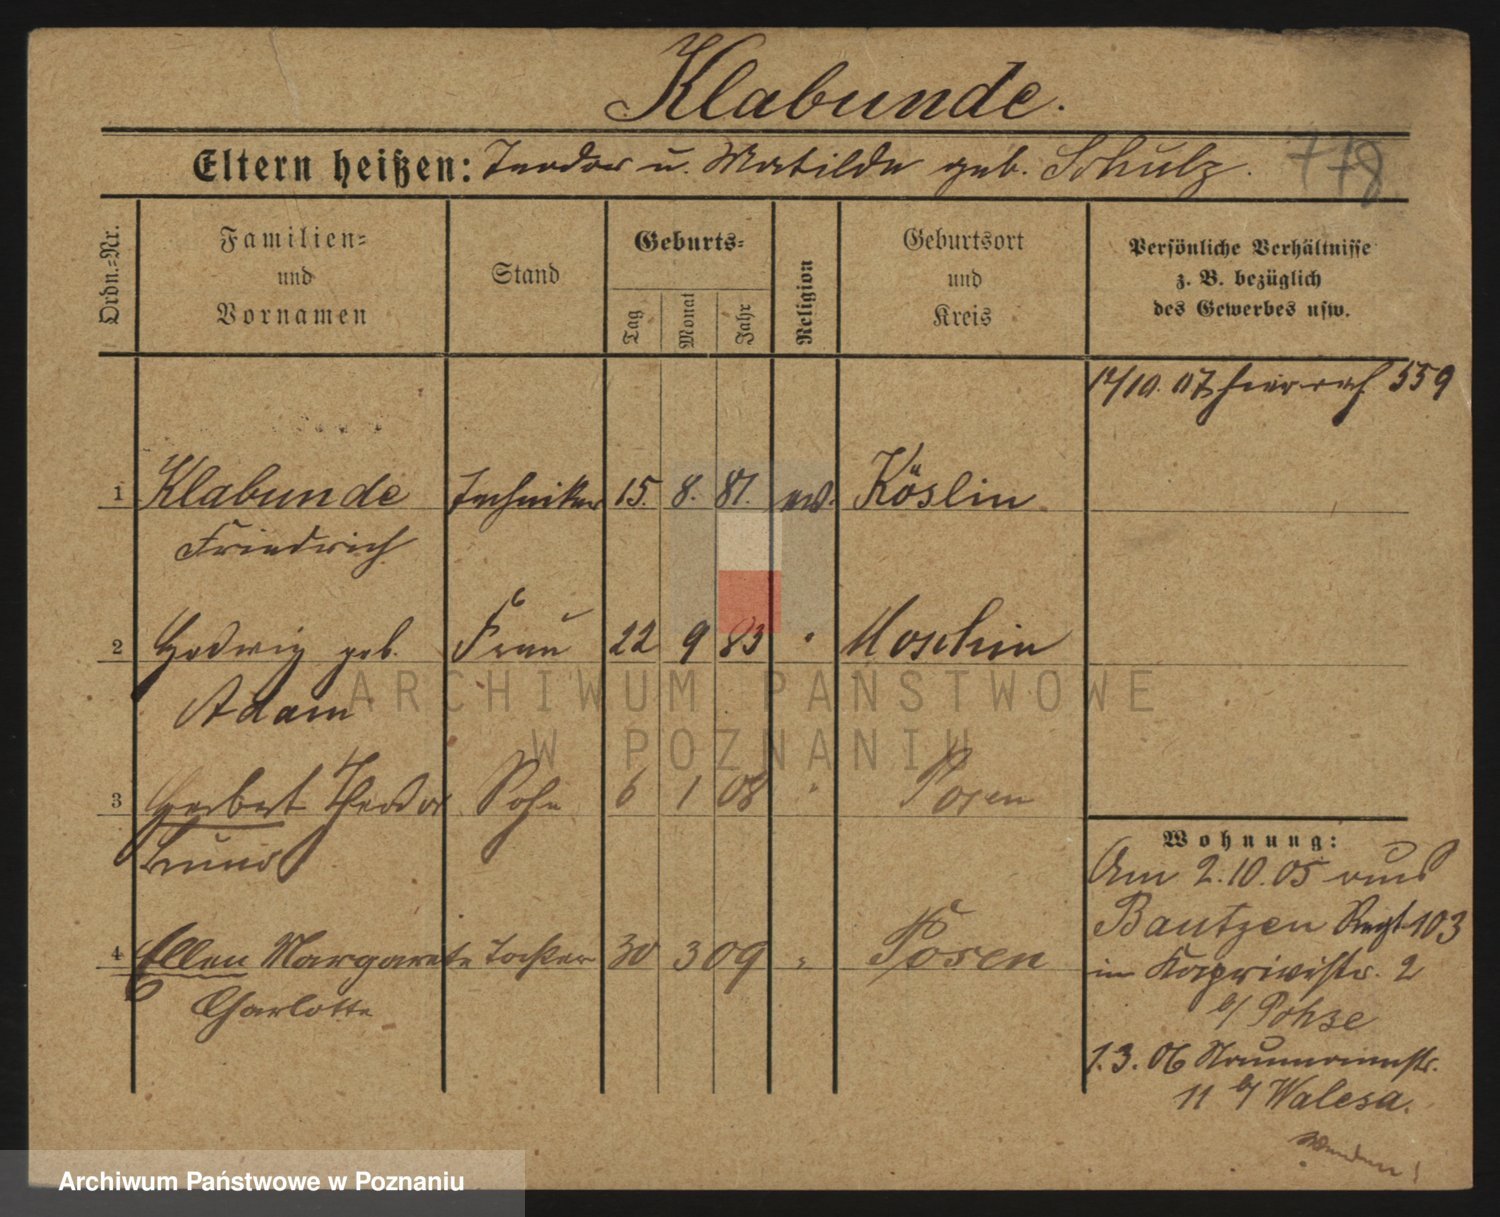 Klabunde.
Eltern heißen: Teodor u. Matilde geb. Schulz. 778
Ordn.-Nr.
Familien-
und
Vornamen
Stand
Geburts-
Tag
Monat
Jahr
Religion
Geburtsort
und
Kreis
Persönliche Verhältnisse
z. B. bezüglich
des Gewerbes usw.
17/10. 07 559
1 Klabunde Techniker 15. 8. 81. ev. Köslin
Friedrich
2 Hedwig geb. Frau 22 9 83 " Moschin
Adam
3 Herbert Theodor Sohn 6 1 08 " Posen
Bruno
4 Ellen Margarete Tochter 30 3 09 " Posen
Charlotte
Wohnung:
Am 2.10.05 aus
Bautzen Regt 103
in Kaprivistr. 2
b/ Pohse
1.3.06 Naumannstr.
11 b/ Walesa.
Wenden!
ARCHIWUM PAŃSTWOWE
W POZNANIU
Archiwum Państwowe w Poznaniu